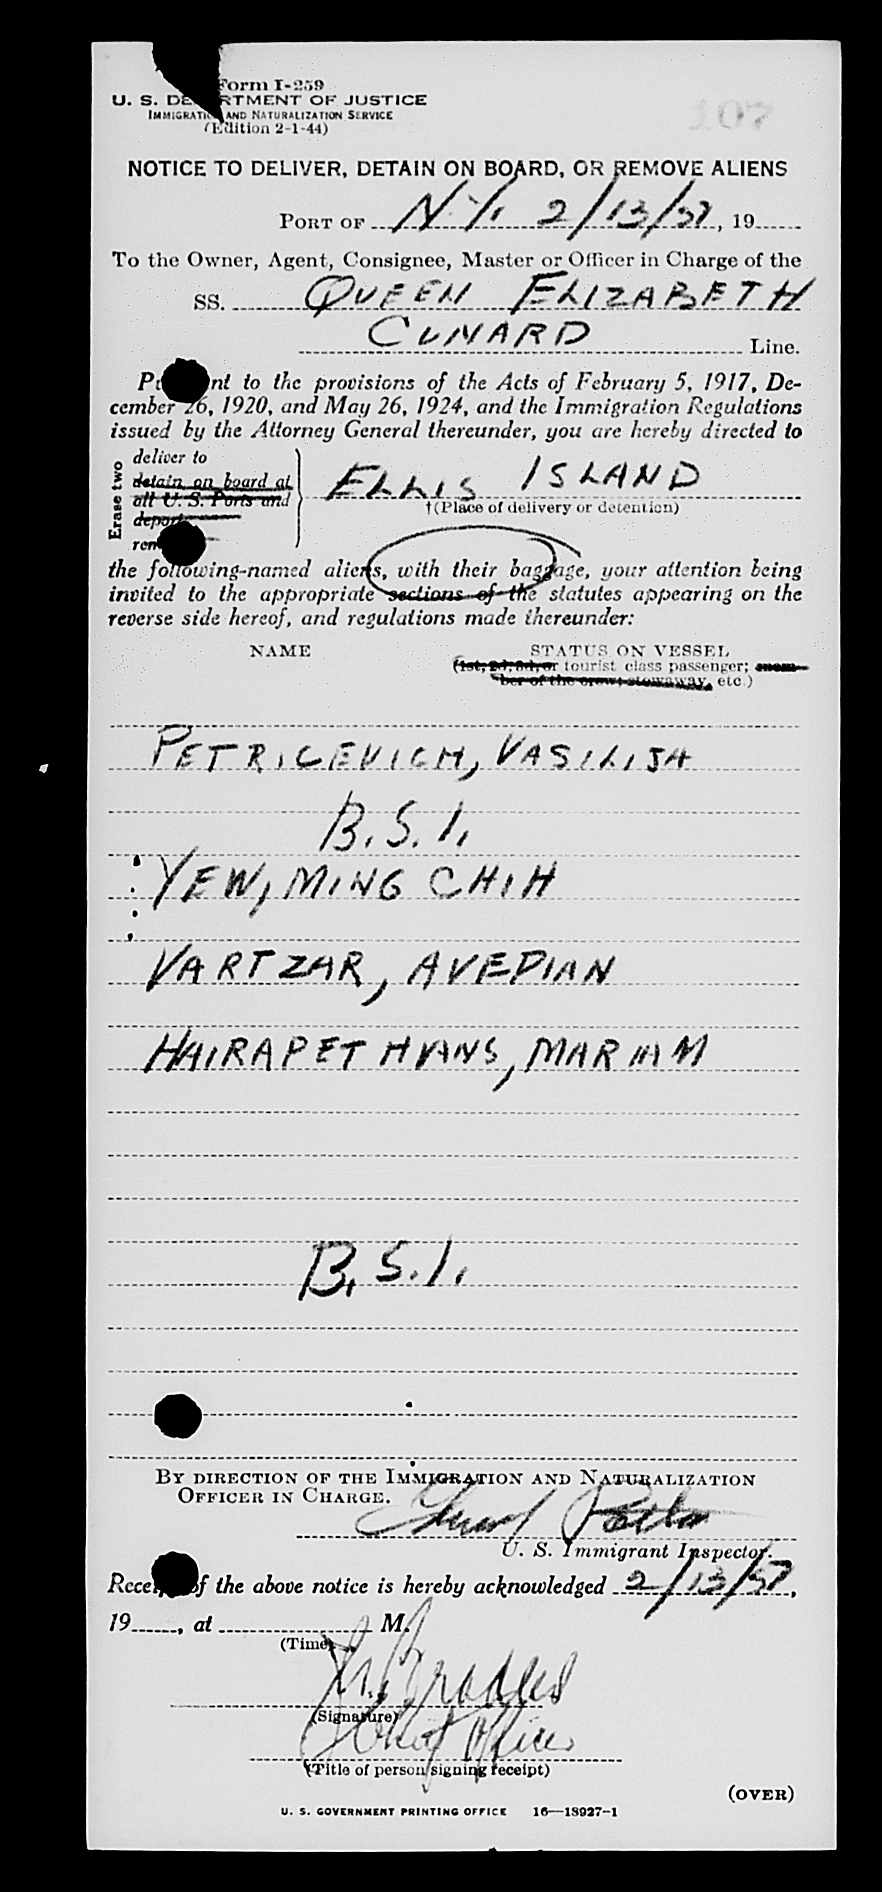 107
Form I-259
U. S. DEPARTMENT OF JUSTICE
IMMIGRATION AND NATURALIZATION SERVICE
(Edition 2-1-44)
NOTICE TO DELIVER, DETAIN ON BOARD, OR REMOVE ALIENS
PORT OF N.Y. 2/13/57, 19
To the Owner, Agent, Consignee, Master or Officer in Charge of the
SS. QUEEN ELIZABETH
CUNARD Line.
Pursuant to the provisions of the Acts of February 5, 1917, De-
cember 26, 1920, and May 26, 1924, and the Immigration Regulations
issued by the Attorney General thereunder, you are hereby directed to
Erase two
deliver to
detain on board at
all U. S. Ports and
deport
ELLIS ISLAND
†(Place of delivery or detention)
the following-named aliens, with their baggage, your attention being
invited to the appropriate sections of the statutes appearing on the
reverse side hereof, and regulations made thereunder:
NAME STATUS ON VESSEL
(1st, 2d, 3d, or tourist class passenger; mem-
ber of the crew; stowaway, etc.)
PETRICEVICH, VASILIJA
B.S.I.
YEW, MING CHIH
VARTZAR, AVEDIAN
HAIRAPETHVANS, MARIAM
B.S.I.
BY DIRECTION OF THE IMMIGRATION AND NATURALIZATION
OFFICER IN CHARGE.
U. S. Immigrant Inspector.
Receipt of the above notice is hereby acknowledged 2/13/57,
19, at M.
(Time)
(Signature)
Chief Officer
(Title of person signing receipt)
(OVER)
U. S. GOVERNMENT PRINTING OFFICE 16—18927-1